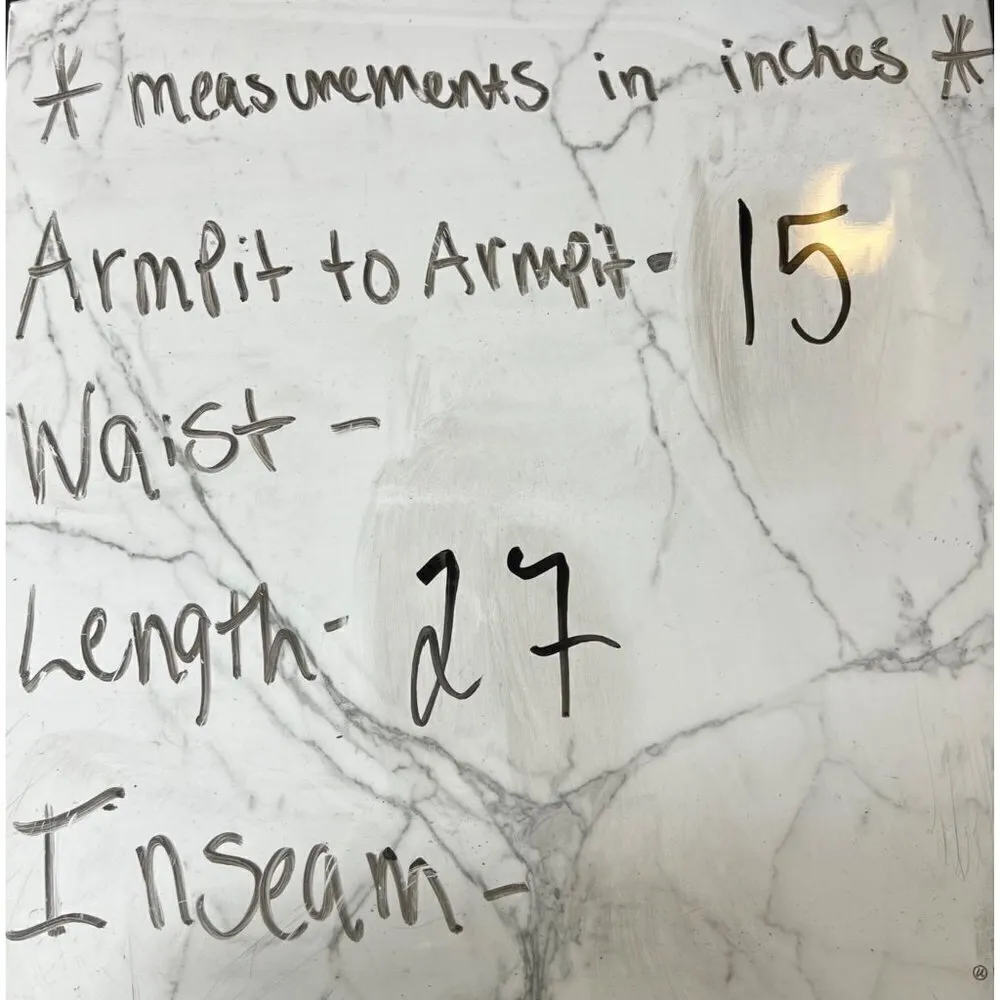 * measurements in inches *
Armpit to Armpit - 15
Waist -
Length - 27
Inseam -